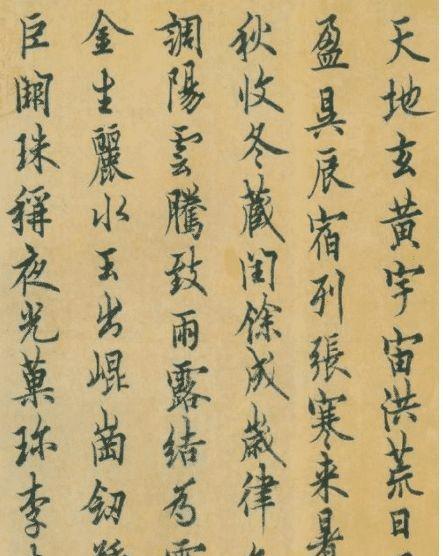 天地玄黃宇宙洪荒日
盈昃辰宿列張寒来暑
秋收冬藏閏餘成歲律
調陽雲騰致雨露結為
金生麗水玉出崐崗釼
巨闕珠稱夜光菓珎李